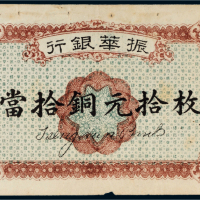 振華銀行
當拾銅元拾枚